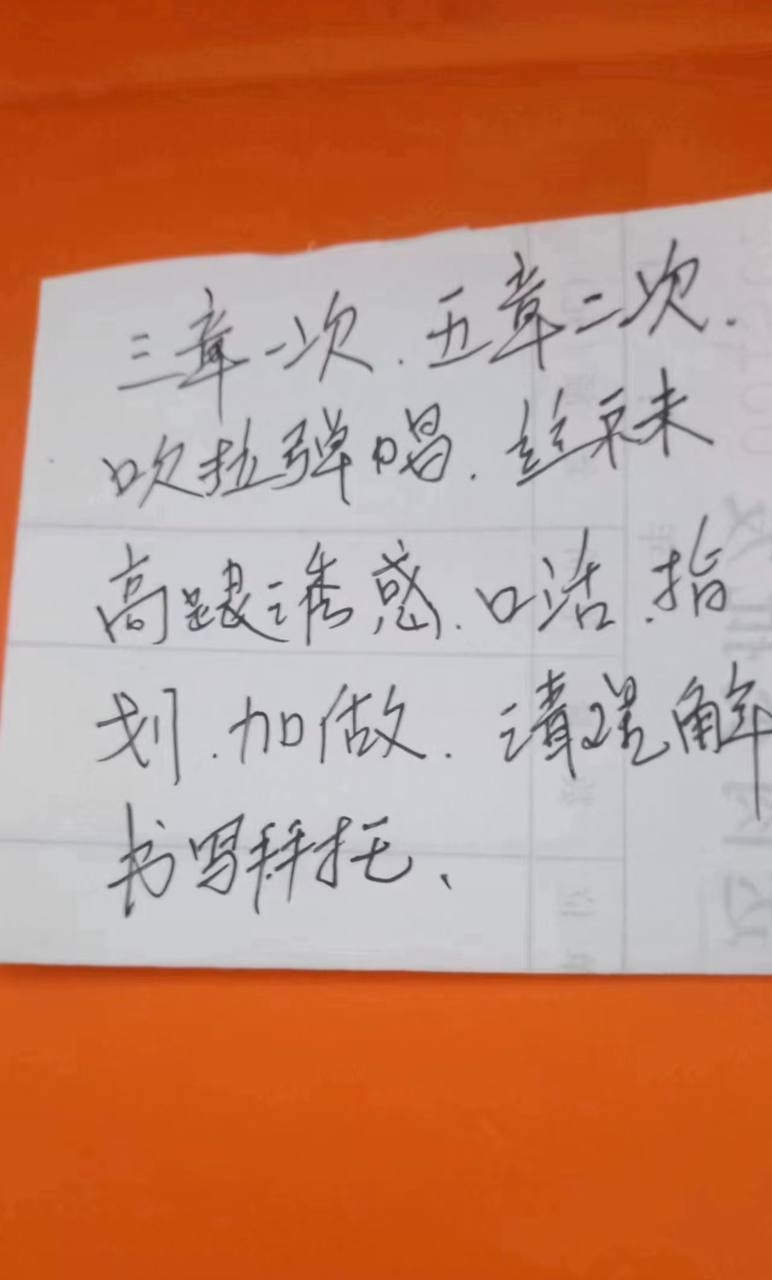 三章一次.五章二次.
吹拉弹唱.丝袜
高跟诱惑.口活.指
划.加做.请理解
书写拜托、